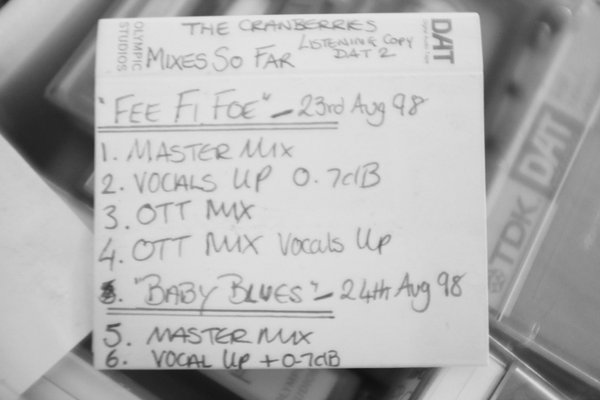 THE CRANBERRIES
OLYMPIC STUDIOS
MIXES SO FAR
LISTENING COPY
DAT 2
DAT
"FEE FI FOE" - 23rd Aug 98
1. MASTER MIX
2. VOCALS UP 0.7dB
3. OTT MIX
4. OTT MIX Vocals Up
"BABY BLUES" - 24th Aug 98
5. MASTER MIX
6. VOCAL UP + 0.7dB
TDK DAT